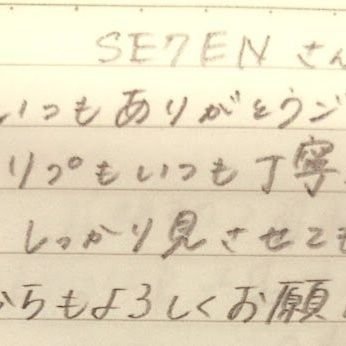 SE7ENさん
いつもありがとうご
リプもいつも丁寧
しっかり見させても
からもよろしくお願